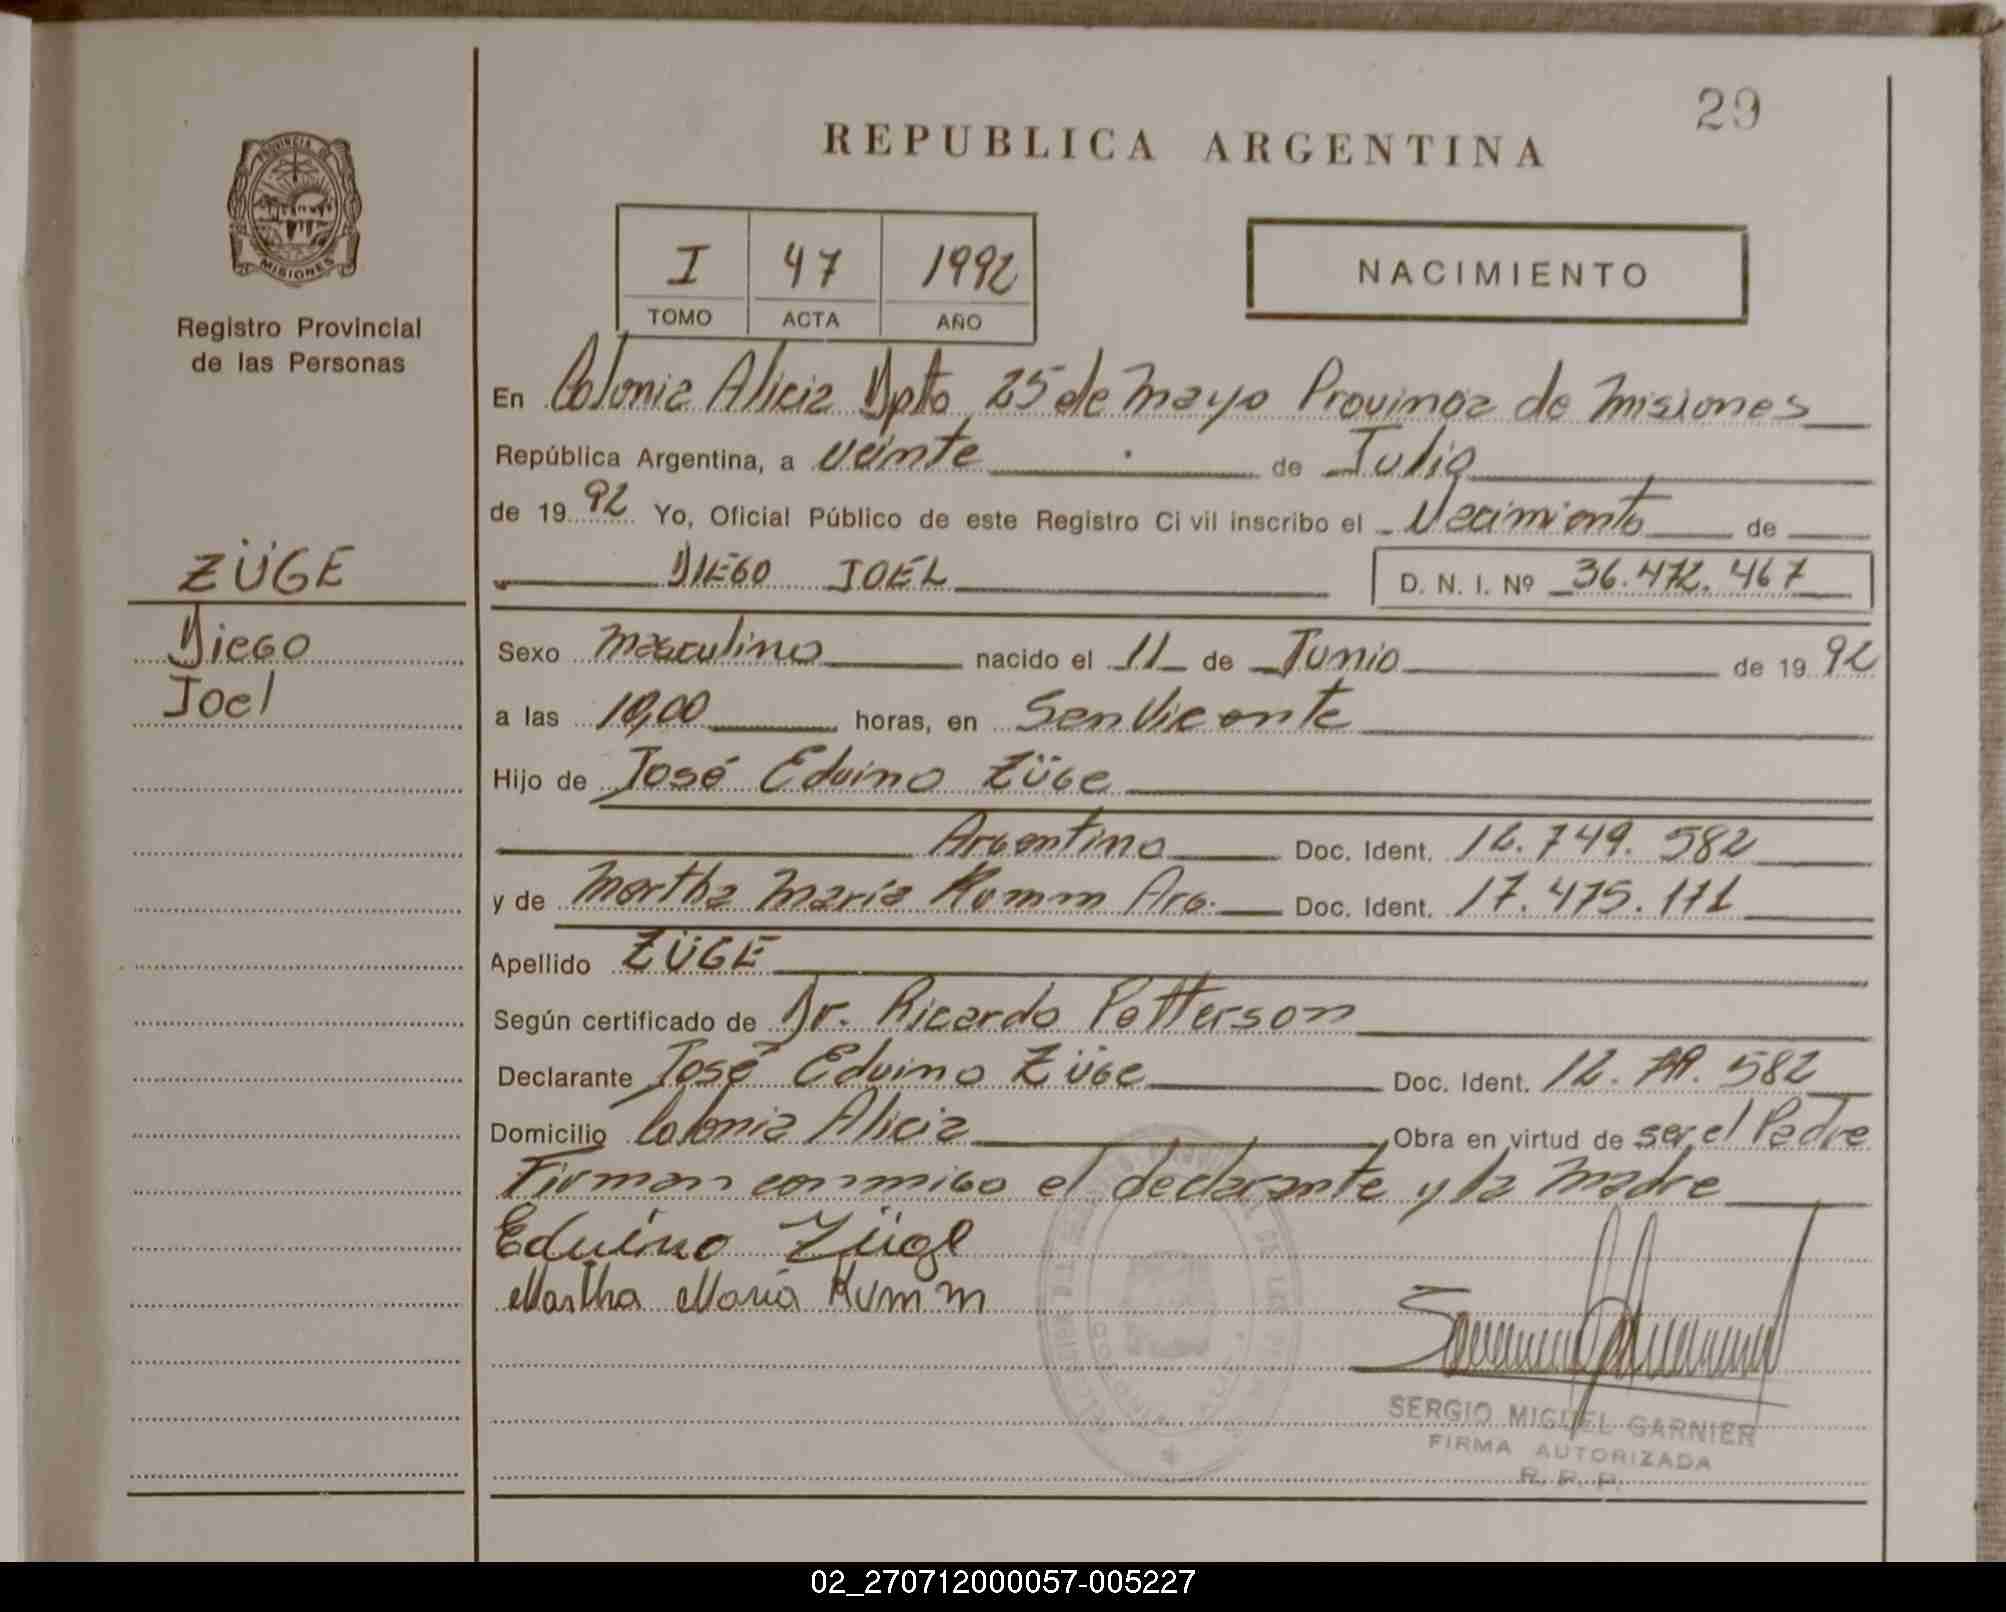 29
REPUBLICA ARGENTINA
PROVINCIA DE
MISIONES
Registro Provincial
de las Personas
I 47 1992
TOMO ACTA AÑO
NACIMIENTO
En Colonia Alicia Dpto 25 de Mayo Provincia de Misiones
República Argentina, a veinte de Julio
de 1992 Yo, Oficial Público de este Registro Ci vil inscribo el Nacimiento de
DIEGO JOEL D. N. I. Nº 36.472.467
ZÜGE
Diego
Joel
Sexo Masculino nacido el 11 de Junio de 1992
a las 10,00 horas, en San Vicente
Hijo de José Eduino Züge
Argentino Doc. Ident. 12.749.582
y de Martha Maria Kumm Arg. Doc. Ident. 17.475.111
Apellido ZÜGE
Según certificado de Dr. Ricardo Patterson
Declarante José Eduino Züge Doc. Ident. 12.749.582
Domicilio Colonia Alicia Obra en virtud de ser el Padre
Firman conmigo el declarante y la Madre
Eduino Züge
Martha Maria Kumm
SERGIO MIGUEL GARNIER
FIRMA AUTORIZADA
R. P. P.
02_270712000057-005227